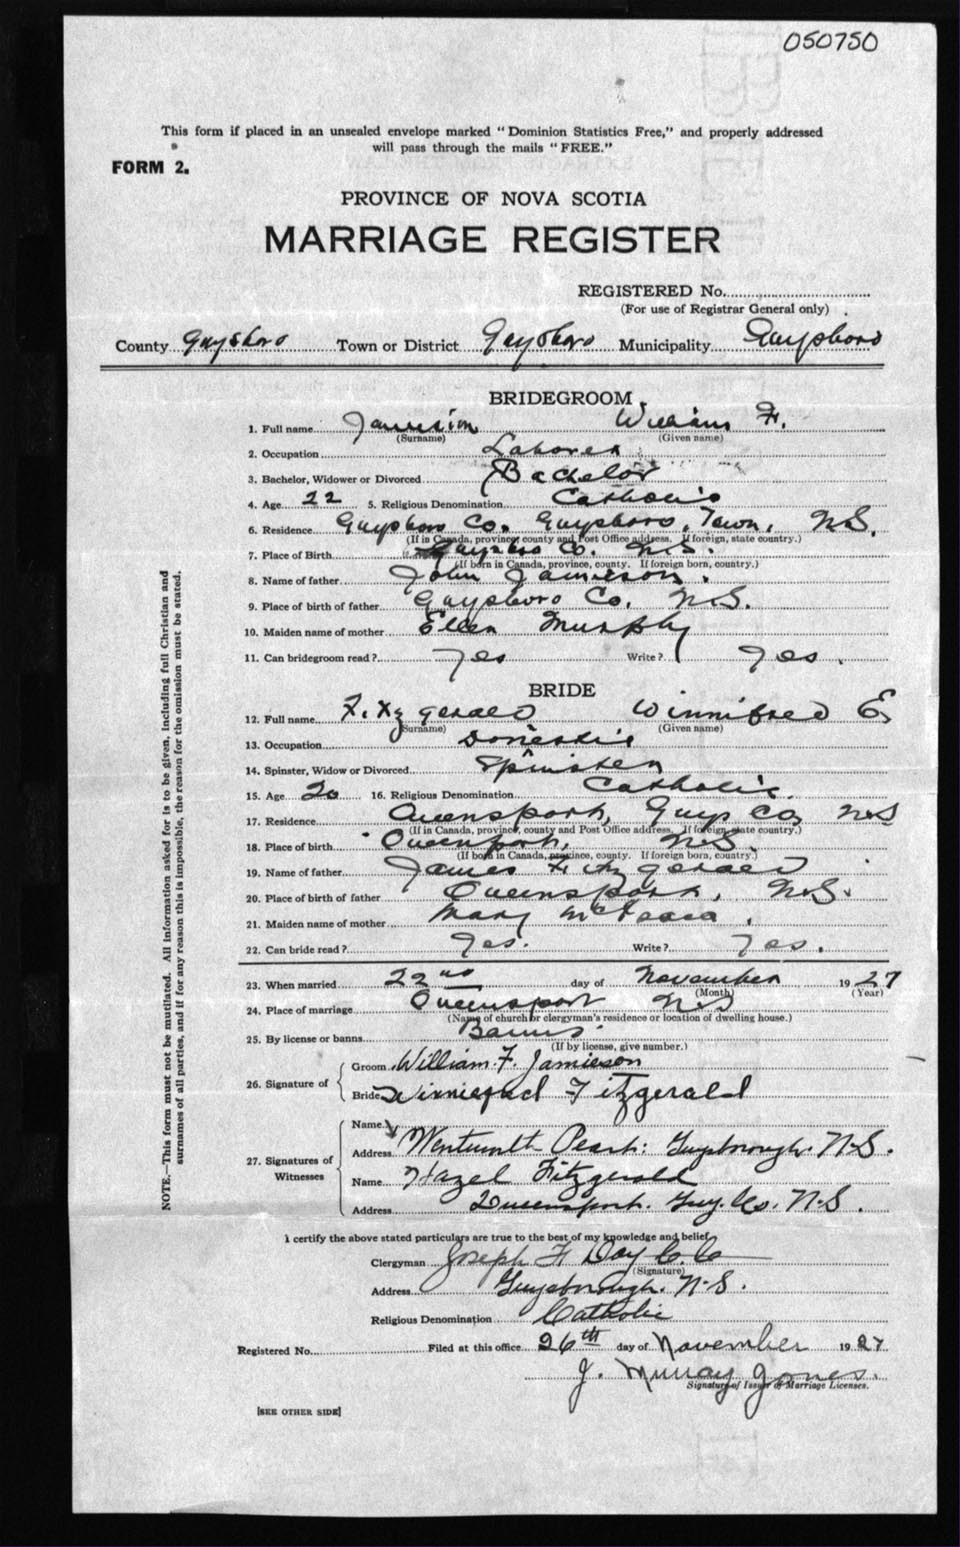 050750
This form if placed in an unsealed envelope marked "Dominion Statistics Free," and properly addressed
will pass through the mails "FREE."
FORM 2.
PROVINCE OF NOVA SCOTIA
MARRIAGE REGISTER
REGISTERED No.
(For use of Registrar General only)
County Guysboro Town or District Guysboro Municipality Guysboro
BRIDEGROOM
1. Full name Jamieson William F.
(Surname) (Given name)
2. Occupation Laborer
3. Bachelor, Widower or Divorced Bachelor
4. Age 22 5. Religious Denomination Catholic
6. Residence Guysboro Co. Guysboro, Town, N.S.
(If in Canada, province, county and Post Office address. If foreign, state country.)
7. Place of Birth Guysboro Co. N.S.
(If born in Canada, province, county. If foreign born, country.)
8. Name of father John Jamieson.
9. Place of birth of father Guysboro Co. N.S.
10. Maiden name of mother Ellen Murphy
11. Can bridegroom read? Yes Write? Yes.
BRIDE
12. Full name Fitzgerald Winnifred E
(Surname) (Given name)
13. Occupation Domestic
14. Spinster, Widow or Divorced Spinster
15. Age 20 16. Religious Denomination Catholic
17. Residence Queensport, Guys Co, N.S
(If in Canada, province, county and Post Office address. If foreign, state country.)
18. Place of birth Queensport, N.S.
(If born in Canada, province, county. If foreign born, country.)
19. Name of father James Fitzgerald
20. Place of birth of father Queensport, N.S.
21. Maiden name of mother Mary
22. Can bride read? Yes. Write? Yes.
23. When married 22nd day of November 1927
(Month) (Year)
24. Place of marriage Queensport N.S
(Name of church or clergyman's residence or location of dwelling house.)
25. By license or banns Banns.
(If by license, give number.)
26. Signature of
Groom William. F. Jamieson
Bride Winniefred Fitzgerald
27. Signatures of Witnesses
Name
Address Wentworth Guysborough. N-S.
Name Hazel Fitzgerald
Address Queensport. Guy. Co. N-S.
I certify the above stated particulars are true to the best of my knowledge and belief,
Clergyman Joseph F. Day C.C
(Signature)
Address Guysborough. N-S.
Religious Denomination Catholic
Registered No. Filed at this office 26th day of November 1927
J. Murray Jones.
Signature of Issuer of Marriage Licenses.
[SEE OTHER SIDE]
NOTE.—This form must not be mutilated. All information asked for is to be given, including full Christian and
surnames of all parties, and if for any reason this is impossible, the reason for the omission must be stated.